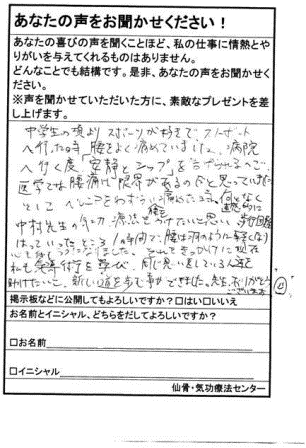 あなたの声をお聞かせください！
あなたの喜びの声を聞くことほど、私の仕事に情熱とや
りがいを与えてくれるものはありません。
どんなことでも結構です。是非、あなたの声をお聞かせく
ださい。
※声を聞かせていただいた方に、素敵なプレゼントを差
し上げます。
中学生の頃より スポーツが好きで
へ行った時 腰をよく痛めていました。病院
へ行く度 安静と シップを
医学では 腰痛 限界があるのだと思っていました
ヘルニアを 何となく
中村先生の 気功 療法 を うけたいと思い、
はって いった ところ 1時間で 腰は 軽くなり
現在
私も を学び 同じ思いをしている人を
助けたいと、新しい道を歩む事ができました。先生、ありがとう
ございます
掲示板などに公開してもよろしいですか？□はい□いいえ
お名前とイニシャル、どちらをだしてよろしいですか？
□お名前
□イニシャル
仙骨・気功療法センター